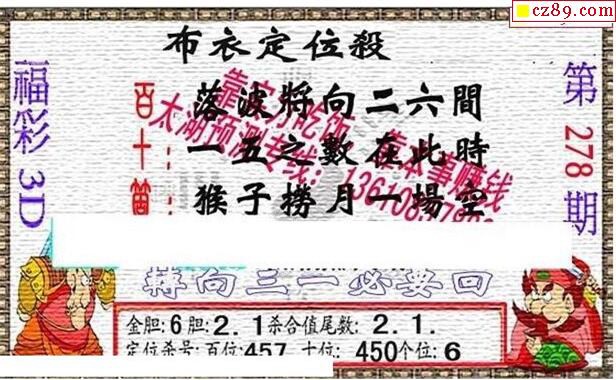 cz89.com
布衣定位殺
福彩3D
第278期
百十
落波將向二六間
一五之數在此時
猴子撈月一場空
靠实力吃饭 靠本事赚钱
太湖预测专线:
向三一必要回
金胆:6胆:2.1杀合值尾数:2.1.
定位杀号:百位:457 十位:450个位:6